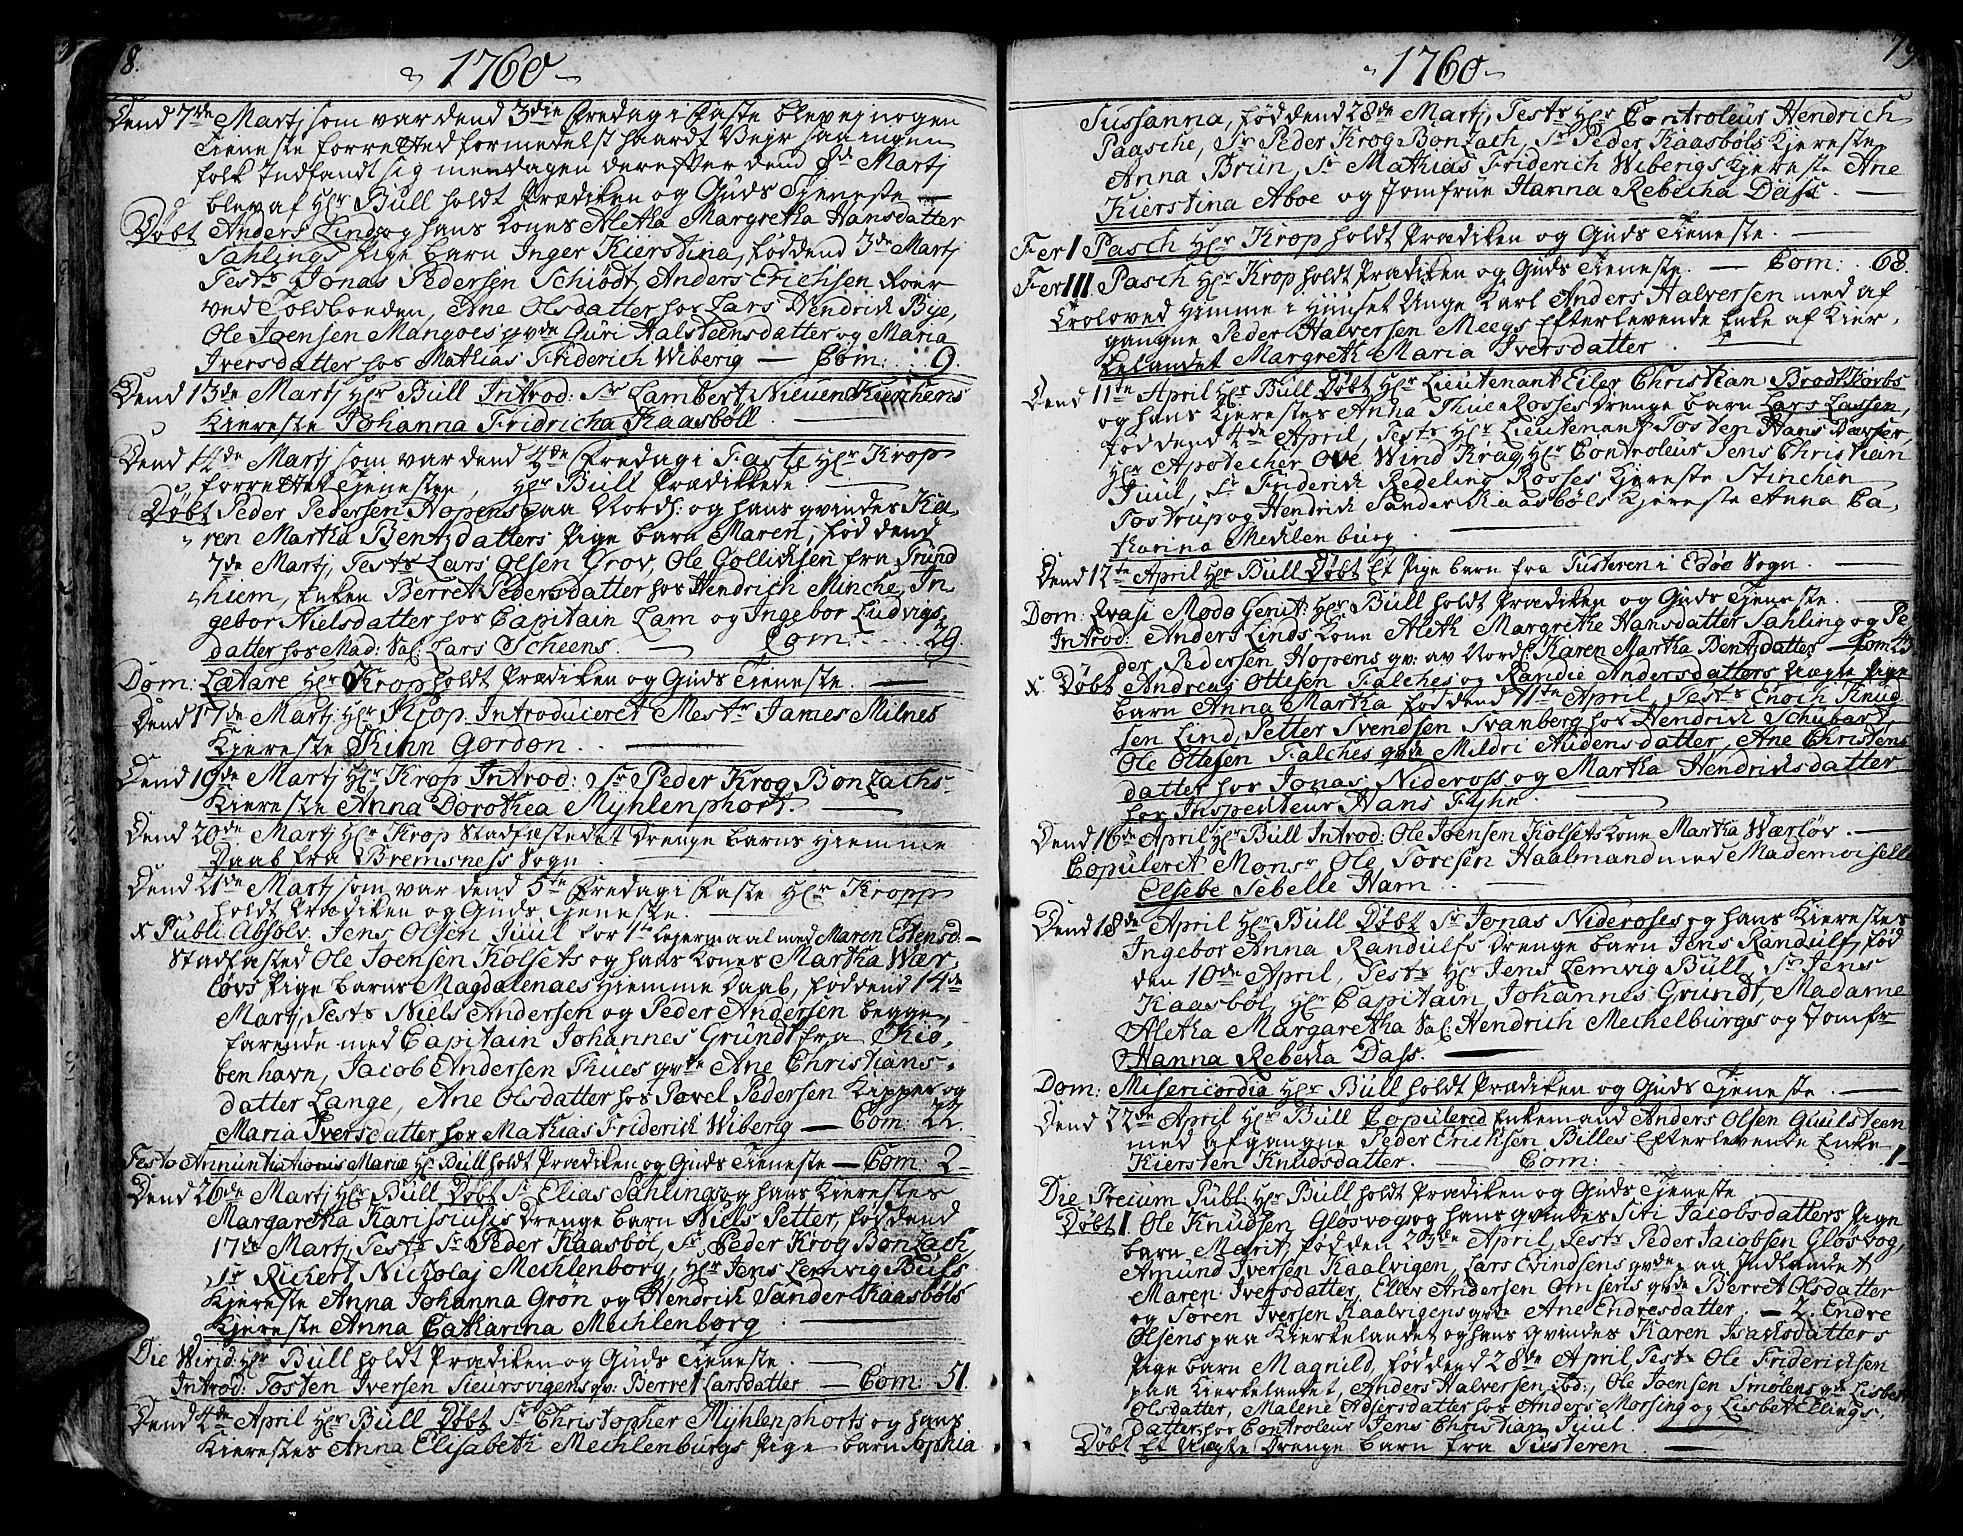 8.
1760
Dend 7de Martj som var dend 3die Fredag i Faste blev ej nogen
Tieneste forretted formedelst haardt Vejr saa ingen
folk Indfandt sig men dagen derefter dend 8de Martj
blev af Hr Büll holdt Prædiken og Guds Tjeneste
Døbt Anders Linds og hans Kones Aletha Margretha Hansdatter
Sahlings Pige barn Inger Kierstina, fød dend 3de Martj
Tests Jonas Pedersen Schiødt, Anders Erichsen Roer
ved Toldboeden, Ane Olsdatter hos Lars Hendrich Bye,
Ole Joensen Mangoes qvde Guri Halsteensdatter og Maria
Iversdatter hos Mathias Friderich Wiberig — Com: 9.
Dend 13de Martj Hr Büll Introd: Sr Lambert Nieuen Kierchens
Kiereste Johanna Fridricha Kaasbøll
Dend 14de Martj som var dend 4de Fredag i Faste Hr Krop
forrettet Tjenesten, Hr Büll Prædikkede
Døbt Peder Pedersen Hopens paa Nordl: og hans qvindes Ka
ren Martha Bentzdatters Pige barn Maren, fød dend
7de Martj, Tests Lars Olsen Grov, Ole Gollichsen fra Trund
hiem, Enken Berret Pedersdatter hos Hendrich Minche, In
gebor Nielsdatter hos Capitain Lam og Ingebor Ludvigs
datter hos Mad: Sal: Lars Scheens. — Com: 29.
Dom: Lætare Hr Krop holdt Prædiken og Guds Tieneste.
Dend 17de Martj Hr Krop Introduceret Mestr James Milnes
Kjereste Kinn Gordon.
Dend 19de Martj Hr Krop Introd: Sr Peder Krog Bonzachs
Kiereste Anna Dorothea Myhlenphort.
Dend 20de Martj Hr Krop Stadfæstedet Drenge barns Hiemme
Daab fra Bremsness Sogn
Dend 21de Martj som var dend 5te Fredag i Faste Hr Kropp
holdt Prædiken og Guds Tjeneste.
x Publ: Absolv: Jens Olsen Juul for 1te Lejermaal med Maren Estensd.
Stadfæsted Ole Joensen Kolsets og hans Kones Martha Wær
løvs Pige barns Magdalenaes Hiemme Daab, fød dend 14de
Martj, Tests Niels Andersen og Peder Andersen begge
farende med Capitain Johannes Grundt fra Kio
benhavn, Jacob Andersen Thues qvde Ane Christians
datter Lange, Ane Olsdatter hos Pavel Pedersen Kipper og
Maria Iversdatter hos Mathias Friderich Wiberig — Com: 22.
Festo Annuntiationis Mariæ Hr Büll holdt Prædiken og Guds Tieneste — Com: 2
Dend 26de Martj Hr Büll Døbt Sr Elias Sahlings og hans Kierestes
Margaretha Karisiusis Drenge barn Niels Petter, fød dend
17de Martj, Tests Sr Peder Kaasbøl, Sr Peder Krog Bonzach,
Sr Richert Nickolaj Mechlenborg, Hr Jens Lemvig Bülls
Kiereste Anna Johanna Grøn og Hendrich Sander Kaasbøls
Kjereste Anna Catharina Mechlenborg
Die Virid: Hr Büll holdt Prædiken og Guds Tieneste.
Introd: Tosten Iversen Sieursvigens qv: Berret Larsdatter — Com: 51.
Dend 2de April Hr Büll Døbt Sr Christopher Myhlenphorts og hans
Kierestes Anna Elisabeth Mechlenburgs Pige barn Sophia
79
1760
Sussanna, fød dend 28de Martj, Tests Hr Controleur Hendrich
Paasche, Sr Peder Krog Bonzach, Sr Peder Kaasbøls Kjereste
Anna Brün, Sr Mathias Friderich Wibergs Kjereste Ane
Kierstina Aboe og Jomfrue Hanna Rebecha Dass.
Fer I Pasch Hr Krop holdt Prædiken og Guds Tieneste.
Fer III Pasch Hr Krop holdt Prædiken og Guds Tieneste. — Com: 68.
Troloved Himme i Huuset Unge Karl Anders Halversen med af
gangne Peder Halversen Meegs Efterlevende Enke af Kier
kelandet Margreth Maria Iversdatter.
Dend 11te April Hr Büll Døbt Hr Lieutenant Eiler Christian Brodtkorbs
og hans Kjerestes Anna Thue Rosses Drenge barn Lars Lassen,
fød dend 4de April, Tests Hr Lieutenant Tosten Hans Dæser,
Hr Apotecher Ove Wind Krag, Hr Controleur Jens Christian
Juul, Sr Friderich Redeling Rosses Kjereste Stinchen
Tostrup og Hendrich Sander Kaasbøls Kjereste Anna Ca
tharina Mechlenburg.
Dend 12te April Hr Büll Døbt Et Pige barn fra Tusteren i Edøe Sogn.
Dom: Qvasi Modo Genit: Hr Büll holdt Prædiken og Guds Tjeneste.
Introd: Anders Linds Kone Aleth Margrethe Hansdatter Sahling og Pe
der Pedersen Hopens qv: av Nordl: Karen Martha Bentzdatter — Com
x Døbt Andreas Ottesen Falches og Randie Andersdatters Uægte Pige
barn Anna Martha fød dend 11te April, Tests Enoch Knud
sen Lind, Petter Svendsen Svanberg hos Hendrich Schubart,
Ole Ottesen Falches qvde Mildri Audensdatter, Ane Christens
datter hos Jonas Nideross og Martha Hendrichsdatter
hos Inspecteur Hans Flyhn.
Dend 16de April Hr Büll Introd: Ole Joensen Kolsets Kone Martha Wærløv.
Copuleret Monsr Ole Toresen Haalmand med Mademoiselle
Elsebe Sebelle Harn.
Dend 18de April Hr Büll Døbt Sr Jonas Nideroses og hans Kierestes
Ingebor Anna Randulfs Drenge barn Jens Randulf, fød
den 10de April, Tests Hr Jens Lemvig Büll, Sr Jens
Kaasbøl, Hr Capitain Johannes Grundt, Madame
Aletha Margaretha Sal: Hendrich Mechelburgs og Jomfr
Hanna Rebecka Dass.
Dom: Misericordia Hr Büll holdt Prædiken og Guds Tjeneste.
Dend 22de April Hr Büll Copulered Enkemand Anders Olsen Guulsteen
med afgangne Peder Ericksen Billes Efterlevende Enke
Kiersten Knudsdatter. Com: 1
Die Precium Publ: Hr Büll holdt Prædiken og Guds Tjeneste
Døbt 1. Ole Knudsen Gløsvogs og hans qvindes Siri Jacobsdatters Pige
barn Marit, fød den 23de April, Tests Peder Jacobsen Gløsvog,
Amund Iversen Kaalvigen, Lars Evindsens qvde paa Indlandet
Maren Iversdatter, Eller Andersen Omsens qvde Berret Olsdatter
og Søren Iversen Kaalvigens qvde Ane Endresdatter. — 2. Endre
Olsens paa Kierkelandet og hans qvindes Karen Isachsdatters
Pige barn Magnild, fød dend 28de April, Tests Ole Friderichsen
paa Kierkelandet, Anders Halversen ibd:, Ole Joensen Smølens qv Lisbet
Olsdatter, Malene Adsersdatter hos Anders Morsing og Lisbet Ellings
datter hos Controleur Jens Christian Juul.
Døbt Et Uægte Drenge barn fra Tusteren